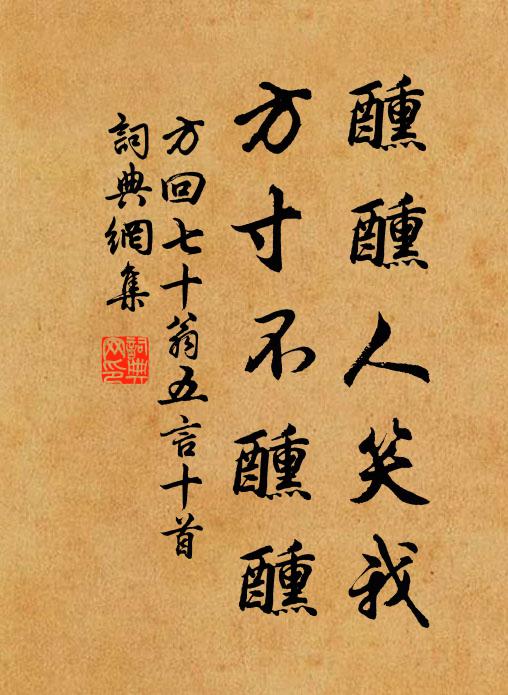 醺醺人笑我
方寸不醺醺
方回七十翁五言十首
詞典網集
詞典網印